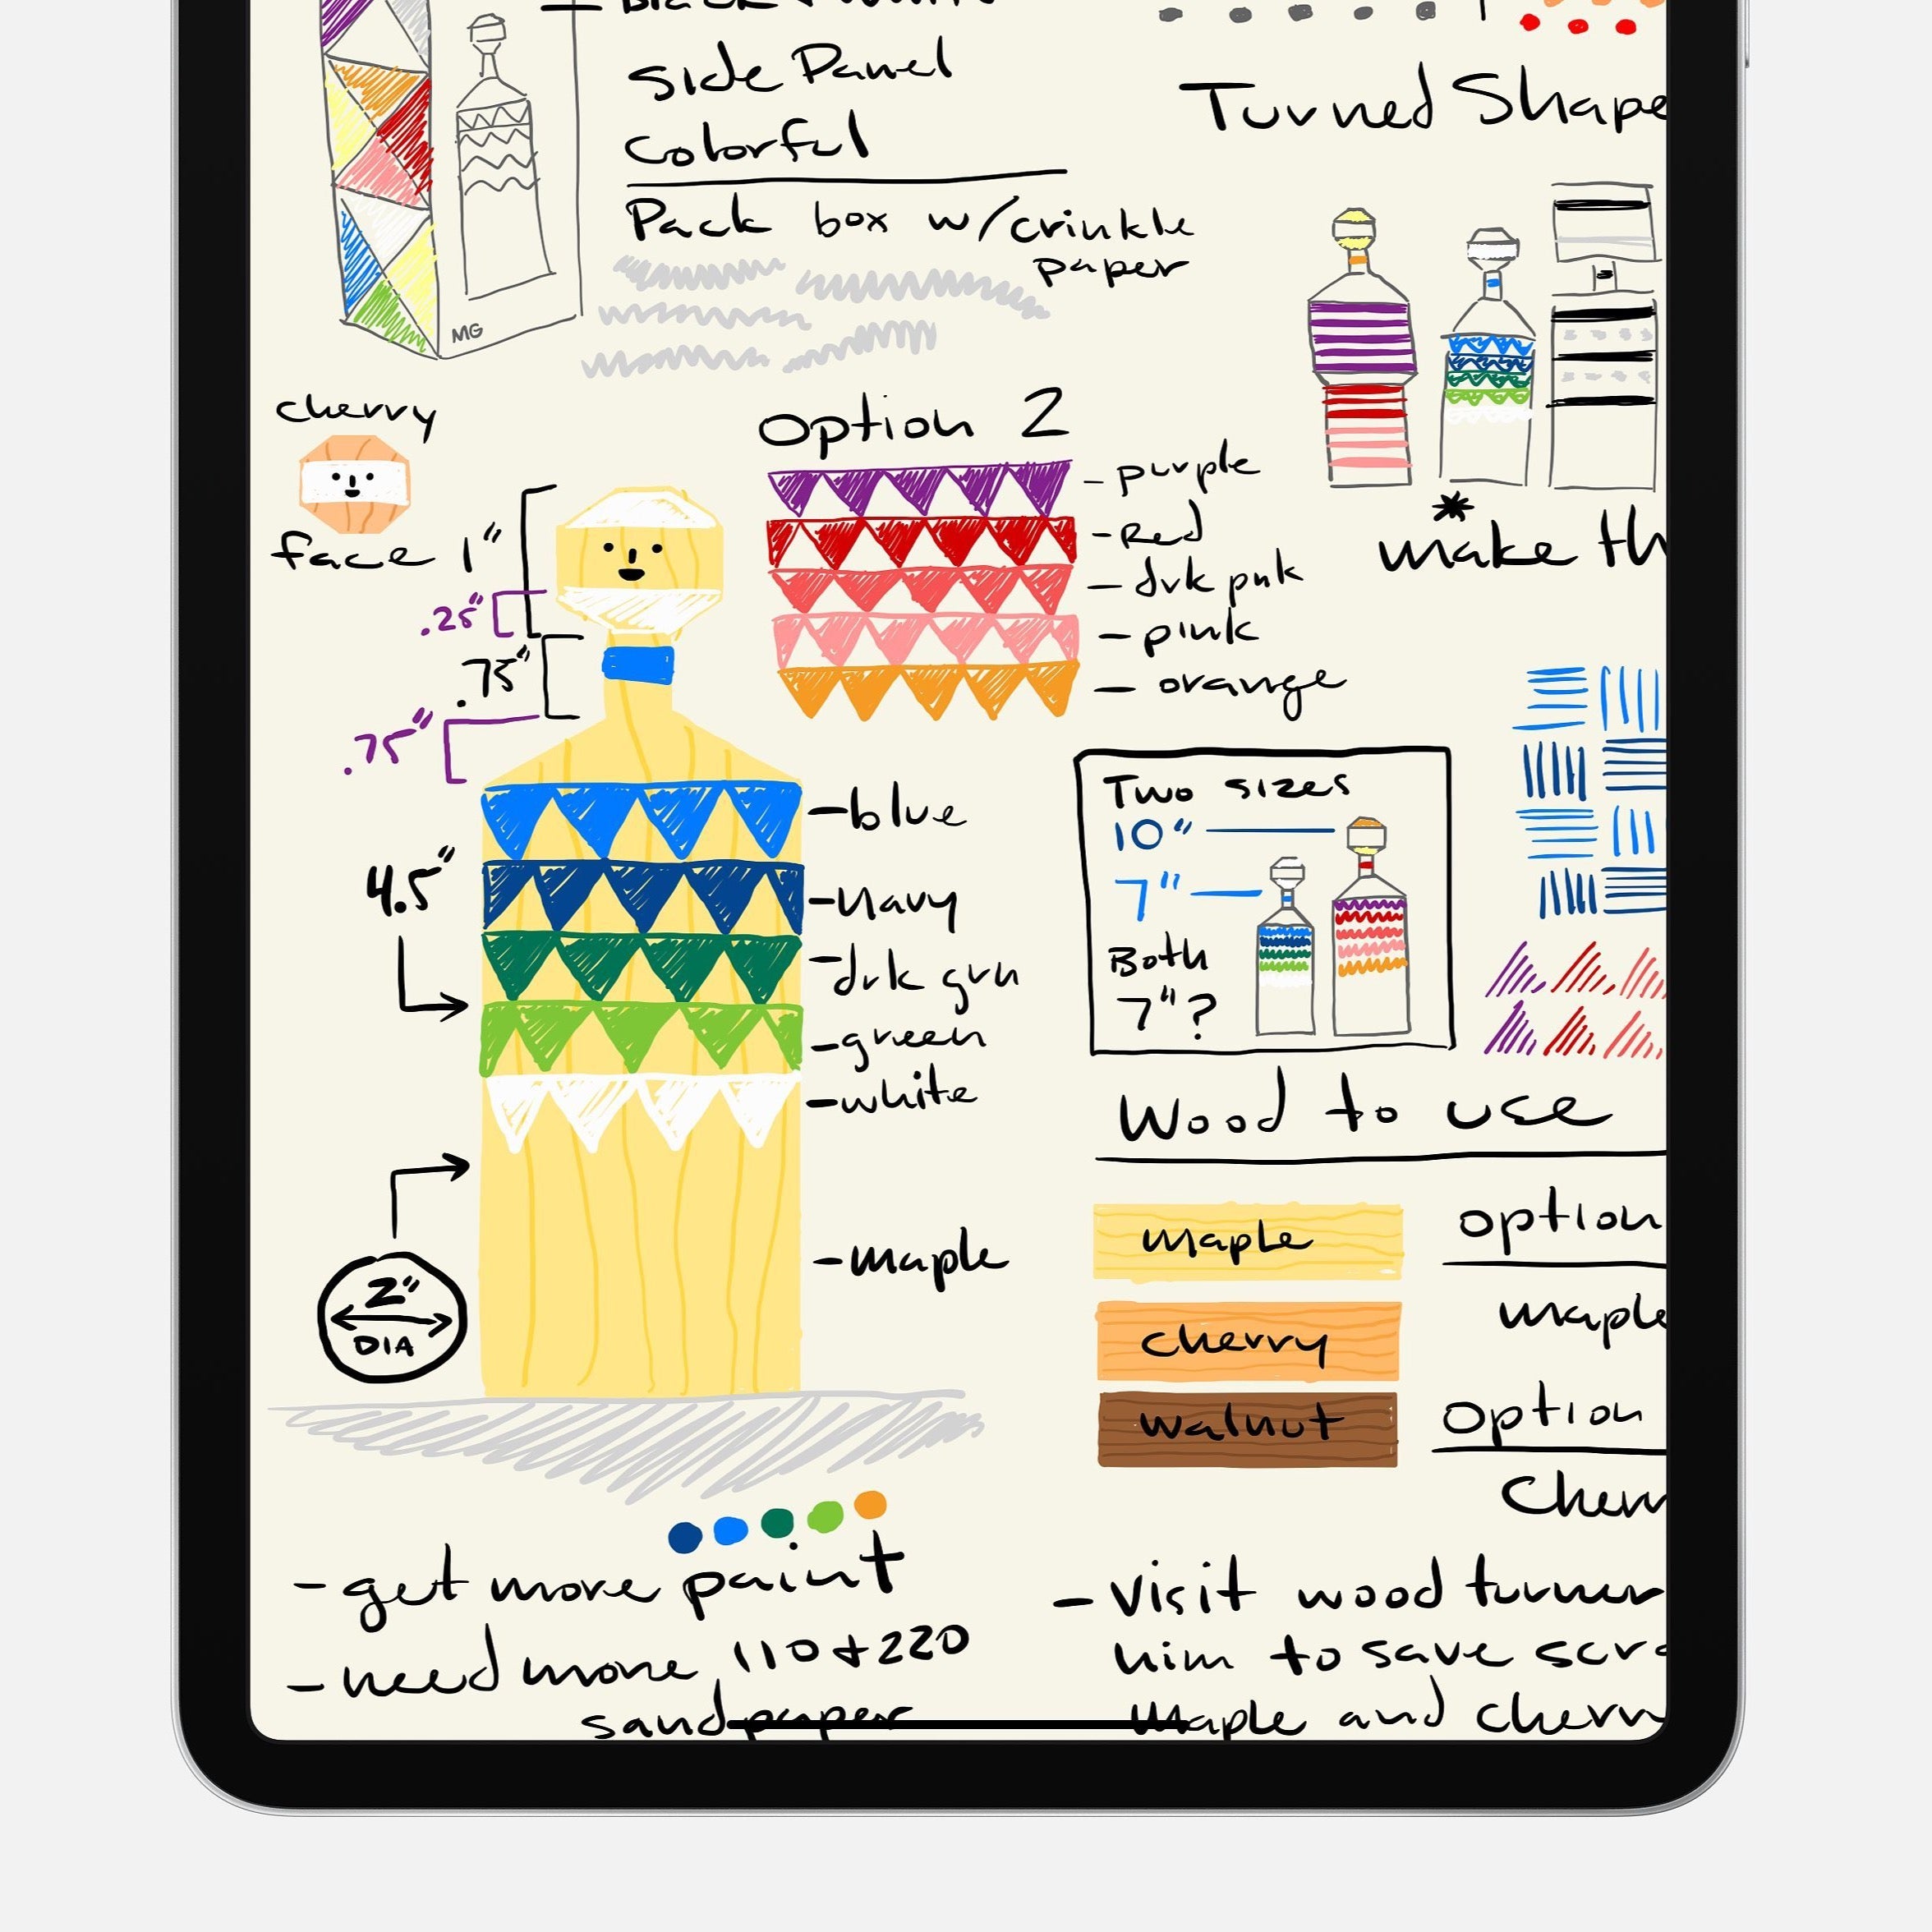 side Panel
Colorful
Pack box w/crinkle
paper
MG
Turned Shape
cherry
face
1"
.25"
.75"
.75"
4.5"
2"
DIA
Option 2
- purple
- Red
- drk pnk
- pink
- orange
- blue
- Navy
- drk grn
- green
- white
- maple
*
make th
Two sizes
10"
7"
Both
7"?
Wood to use
maple
cherry
walnut
option
maple
option
Cherr
- get more paint
- need more 110 + 220
sandpaper
- Visit wood turner
him to save scra
maple and cherr